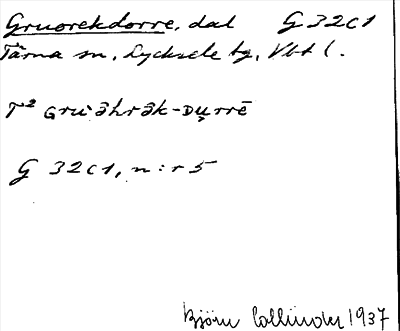 Gruorekdorre, dal G 32c1
Tärna sn, Lycksele tg, Vbt l.
T² Gruə̀hrə̄k-Du̯rrē
G 32c1, n:r 5
Björn Collinder 1937